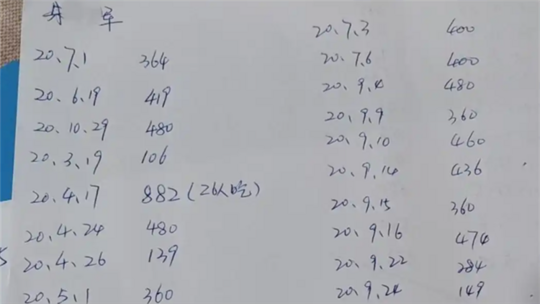 20.7.1 364
20.6.19 419
20.10.29 480
20.3.19 106
20.4.17 882(26人吃)
20.4.24 480
20.4.26 139
20.5.1 360
20.7.3 400
20.7.6 400
20.9.4 480
20.9.9 360
20.9.10 460
20.9.14 436
20.9.15 360
20.9.16 474
20.9.22 284
20.9.24 149